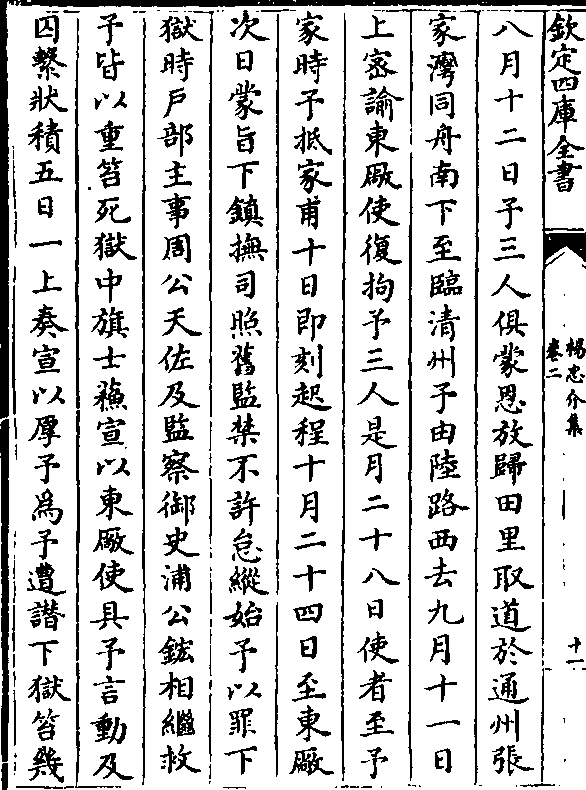 欽定四庫全書
楊忠介集
卷二
十一
八月十二日予三人俱蒙恩放歸田里取道於通州張
家灣同舟南下至臨清州予由陸路西去九月十一日
上密諭東厰使復拘予三人是月二十八日使者至予
家時予抵家甫十日即刻起程十月二十四日至東厰
次日蒙旨下鎮撫司照舊監禁不許怠縱始予以罪下
獄時戶部主事周公天佐及監察御史浦公鋐相繼救
予皆以重笞死獄中旗士蘓宣以東厰使具予言動及
囚繫狀積五日一上奏宣以厚予為予遭譖下獄笞幾